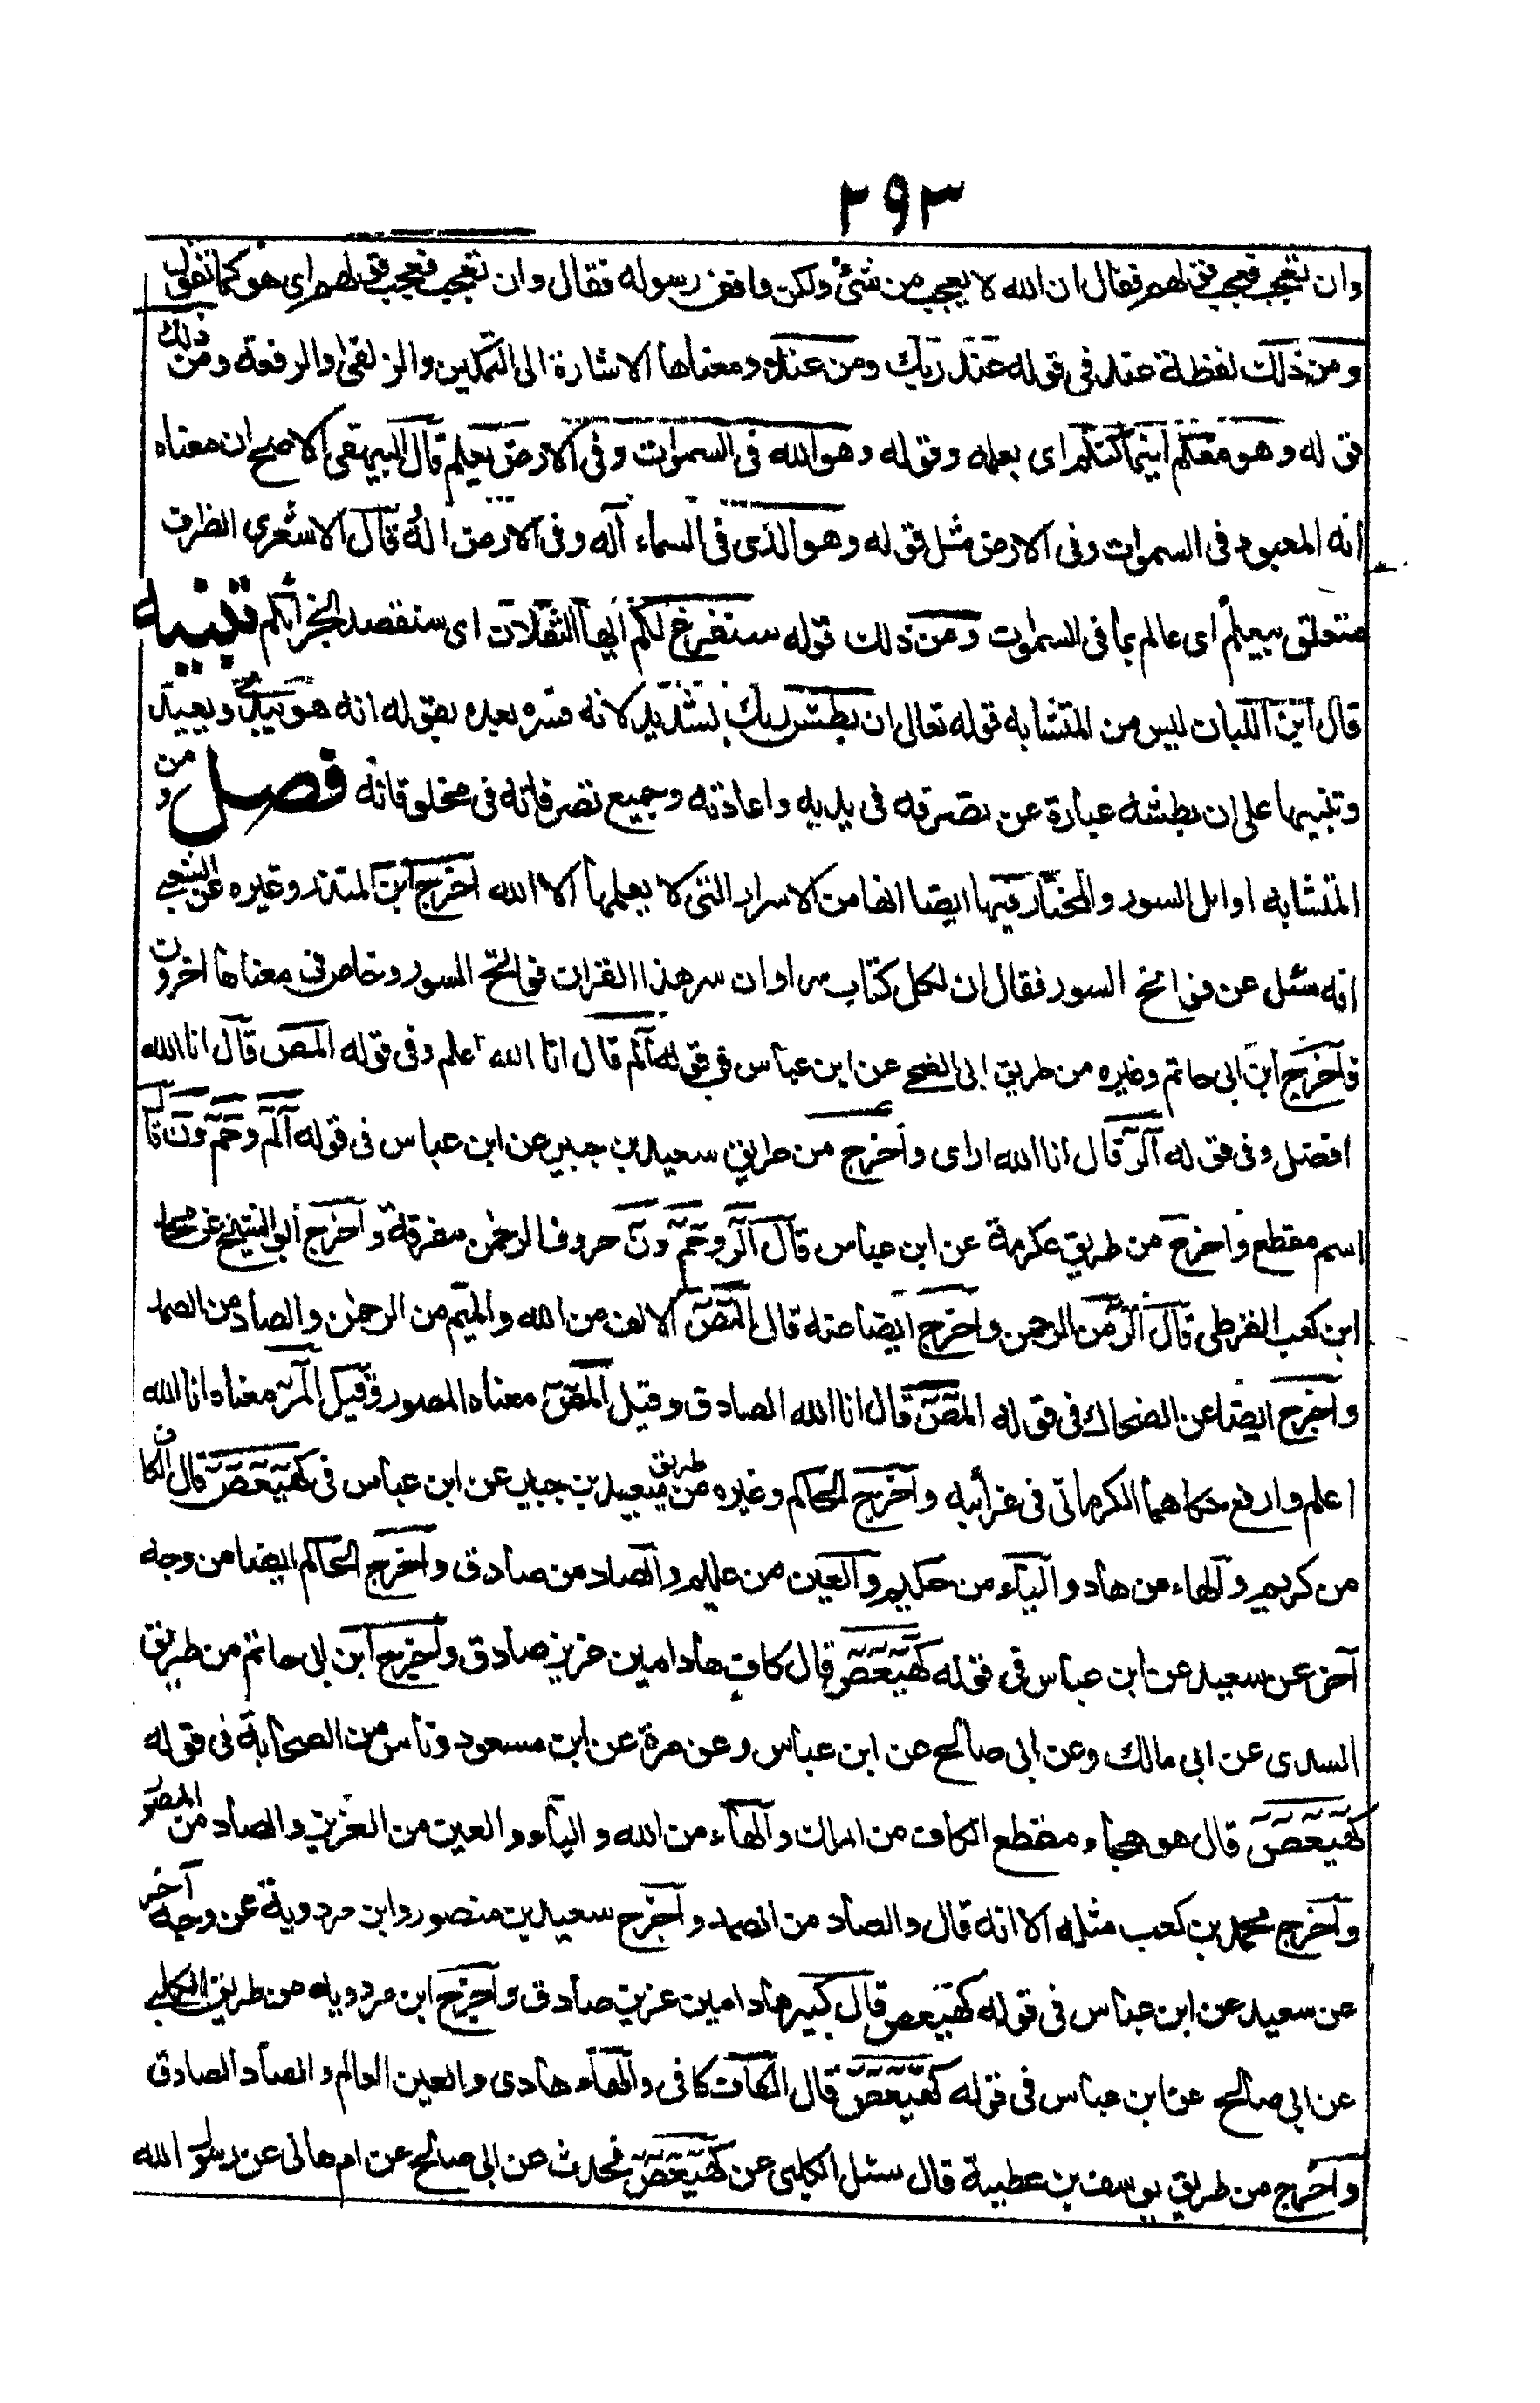 ٢٩٣
وان تعجب فعجب قولهم فقال ان الله لا يعجب من شئ ولكن وافق رسوله فقال وان تعجب فعجب قولهم اى هو كما تقول
ومن ذلك لفظة عند فى قوله عند ربك ومن عنده ومعناها الاشارة الى التمكين والزلفى والرفعة ومن ذلك
قوله وهو معكم اينما كنتم اى بعلمه وقوله وهو الله فى السموات وفى الارض يعلم قال البيهقى الاصح ان معناه
انه المعبود فى السموات وفى الارض مثل قوله وهو الذى فى السماء اله وفى الارض اله قال الاشعرى الظرف
متعلق بيعلم اى عالم بما فى السموات ومن ذلك قوله سنفرغ لكم ايها الثقلان اى سنقصد لجزائكم تنبيه
قال ابن اللبان ليس من المتشابه قوله تعالى ان بطش ربك لشديد لانه فسره بعده بقوله انه هو يبدئ ويعيد
وتنبيها على ان بطشه عبارة عن تصرفه فى بديه واعادته وجميع تصرفاته فى مخلوقاته فصل ومن
المتشابه اوائل السور والمختار فيها ايضا انها من الاسرار التى لا يعلمها الا الله اخرج ابن المنذر وغيره عن الشعبى
انه سئل عن فواتح السور فقال ان لكل كتاب سرا وان سر هذا القران فواتح السور وخاض فى معناها اخرون
فاخرج ابن ابى حاتم وغيره من طريق ابى الضحى عن ابن عباس فى قوله الم قال انا الله اعلم وفى قوله المص قال انا الله
افصل وفى قوله الر قال انا الله ارى واخرج من طريق سعيد بن جبير عن ابن عباس فى قوله الم وحم ون قال
اسم مقطع واخرج من طريق عكرمة عن ابن عباس قال الر وحم ون حروف الرحمن مفرقة واخرج ابو الشيخ عن محمد
ابن كعب القرظى قال الر من الرحمن واخرج ايضا عنه قال المص الالف من الله والميم من الرحمن والصاد من الصمد
واخرج ايضا عن الضحاك فى قوله المص قال انا الله الصادق وقيل المص معناه المصور وقيل المر معناه انا الله
اعلم وارفع حكاهما الكرمانى فى غرائبه واخرج الحاكم وغيره من طريق سعيد بن جبير عن ابن عباس فى كهيعص قال الكاف
من كريم والهاء من هاد والياء من حكيم والعين من عليم والصاد من صادق واخرج الحاكم ايضا من وجه
آخر عن سعيد عن ابن عباس فى قوله كهيعص قال كاف هاد امين عزيز صادق واخرج ابن ابى حاتم من طريق
السدى عن ابى مالك وعن ابى صالح عن ابن عباس وعن مرة عن ابن مسعود وناس من الصحابة فى قوله
كهيعص قال هو هجاء مقطع الكاف من الملك والهاء من الله والياء والعين من العزيز والصاد من المصور
واخرج محمد بن كعب مثله الا انه قال والصاد من الصمد واخرج سعيد بن منصور وابن مردوية عن وجه آخر
عن سعيد عن ابن عباس فى قوله كهيعص قال كبير هاد امين عزيز صادق واخرج ابن مردويه من طريق الكلبى
عن ابى صالح عن ابن عباس فى قوله كهيعص قال الكاف كافى والهاء هادى والعين العالم والصاد الصادق
واخرج من طريق يوسف بن عطية قال سئل الكلبى عن كهيعص فحدث عن ابى صالح عن ام هانى عن رسول الله